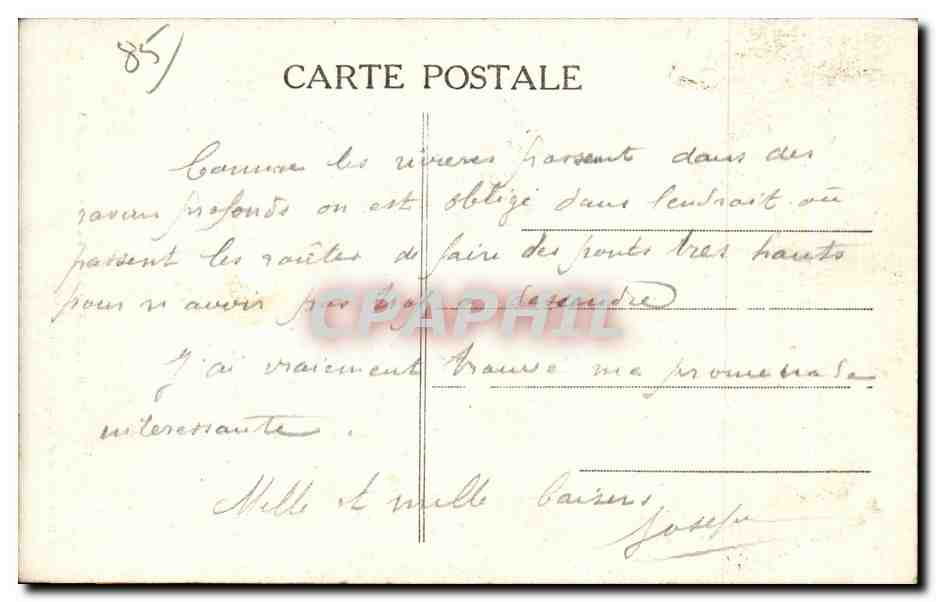 85)
CARTE POSTALE
Comme les rivieres passent dans des
ravin profonds on est obligé dans l'endroit où
passent les routes de faire des ponts tres hauts
pour n avoir pas trop a descendre
J'ai vraiment trouvé ma promenade
interessante.
Mille et mille baisers
Joseph
CPAPHIL